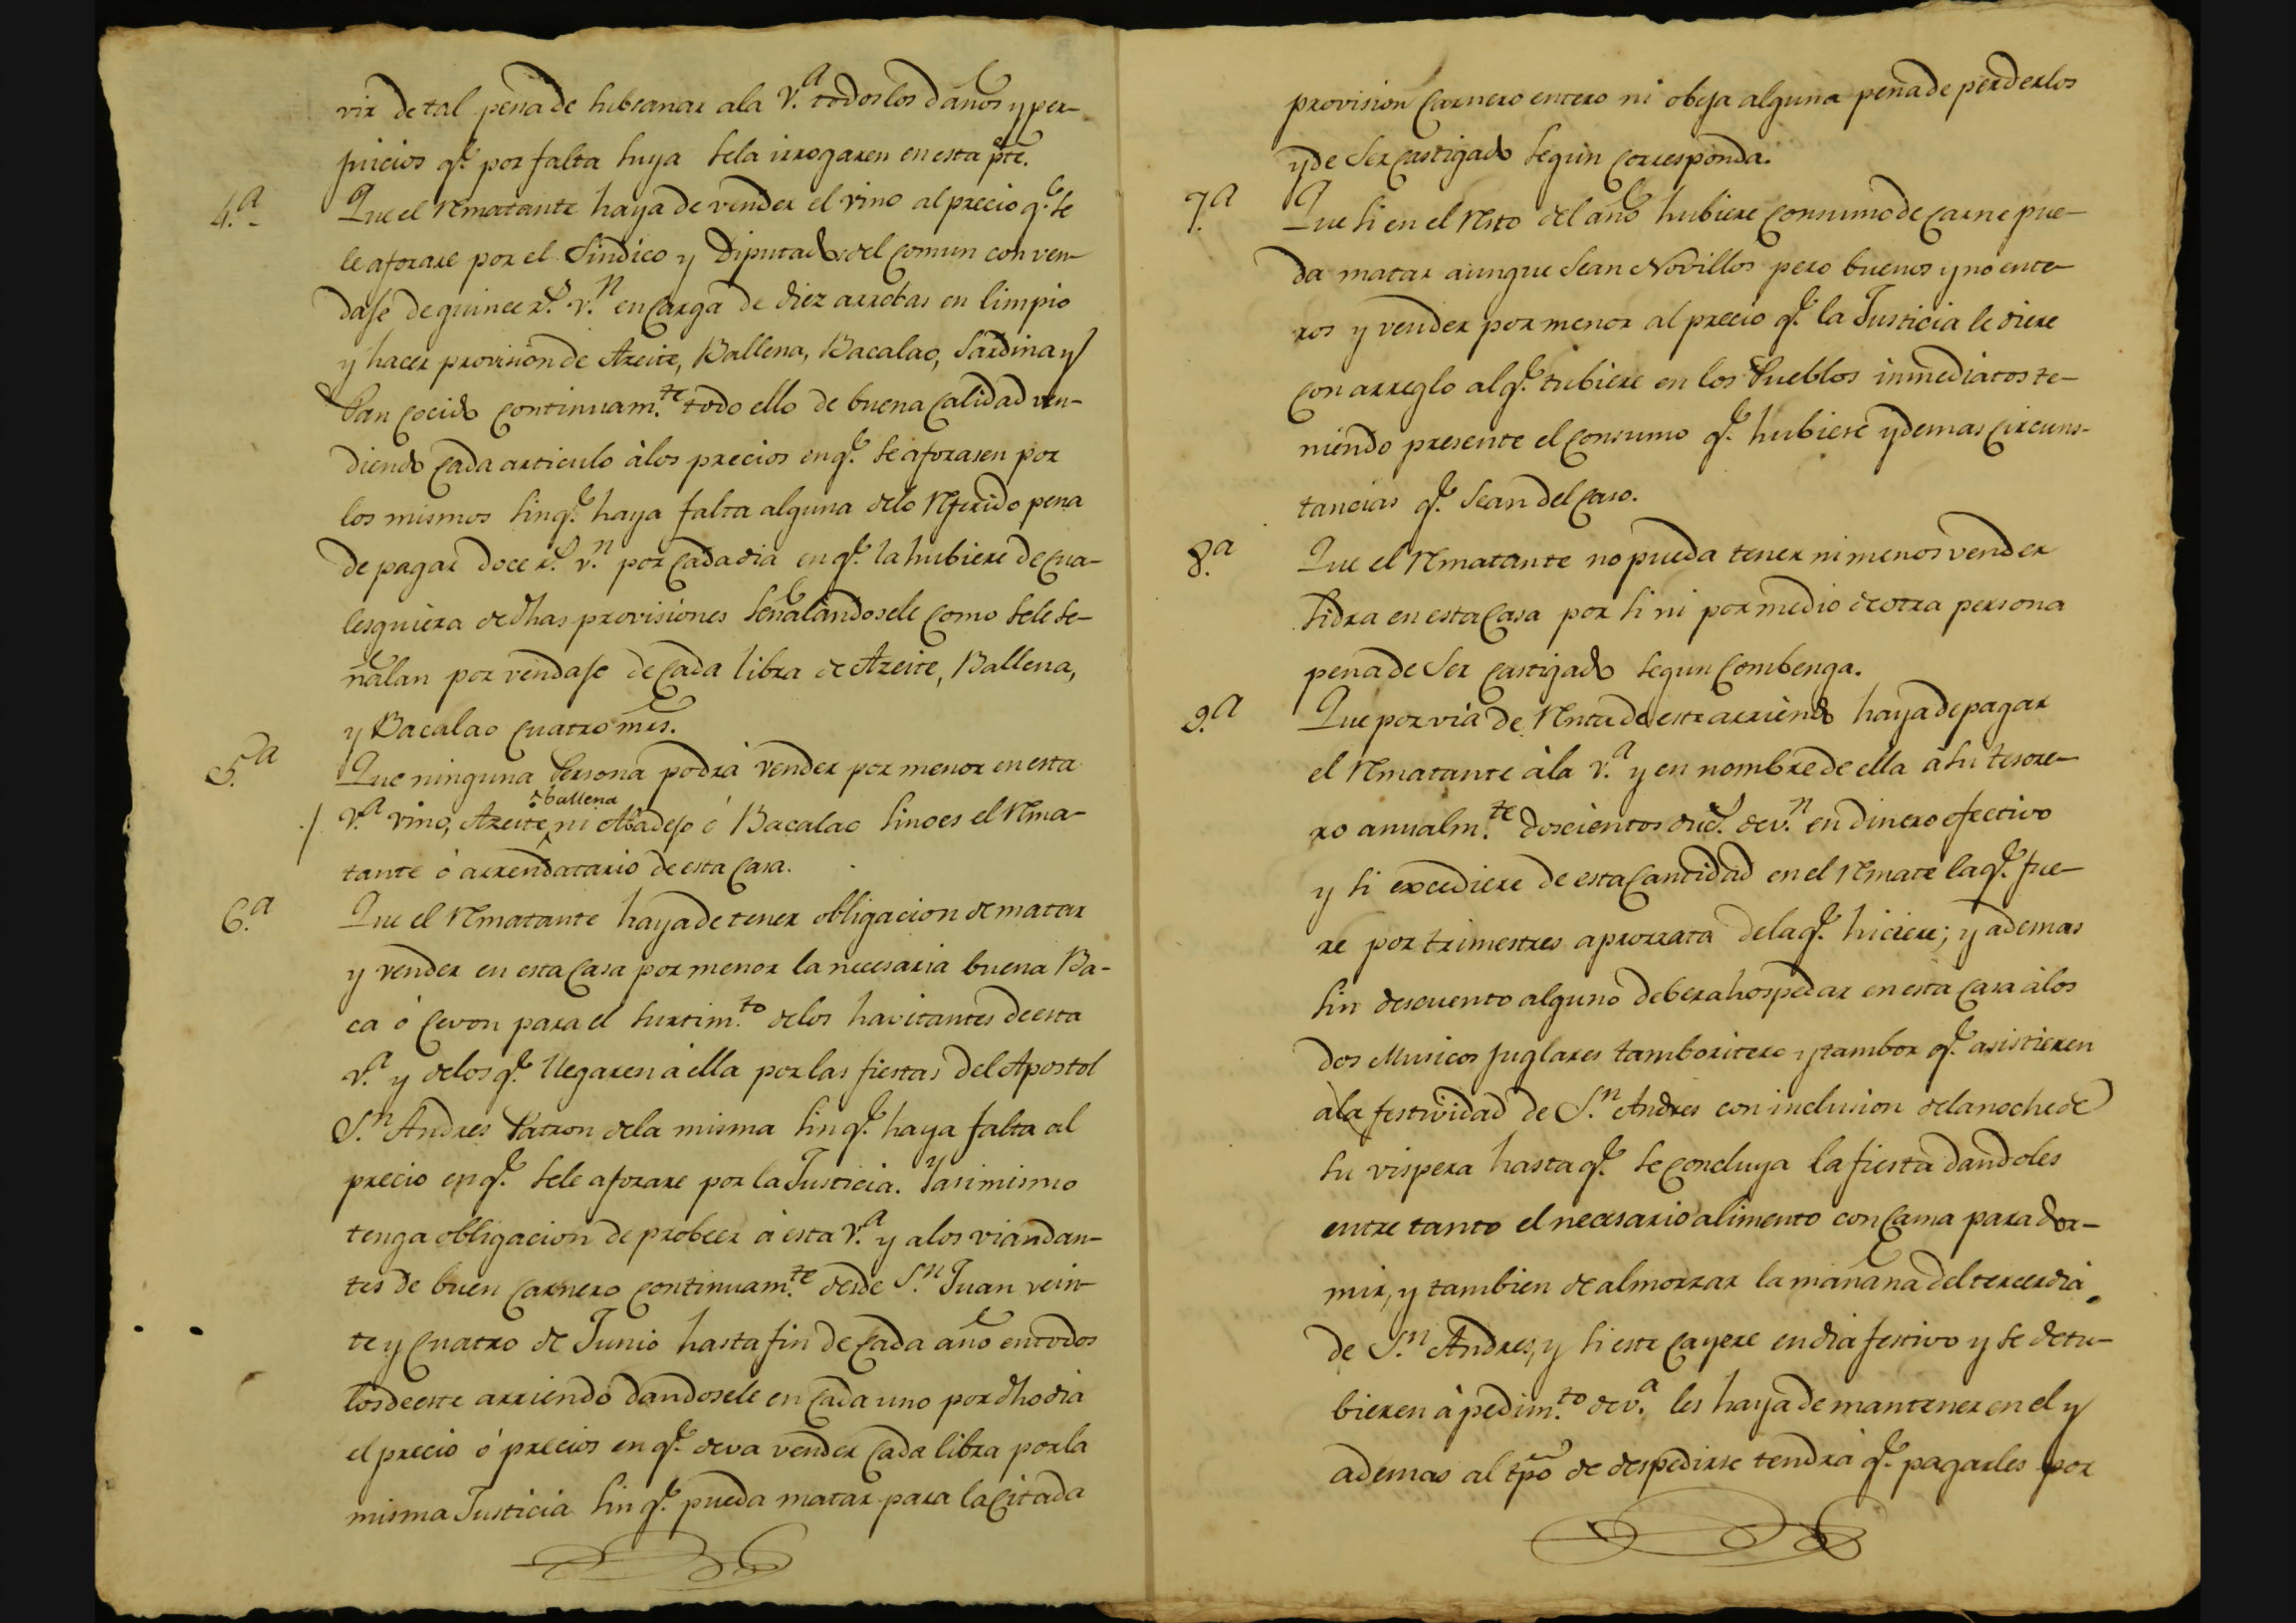 vir de tal pena de subsanar ala V.ª todos los daños y per-
juicios q.e por falta suya sela irrogaren en esta pte.
4.ª Que el Rematante haya de vender el vino al precio q.e se
le aforare por el Sindico y Diputados del comun con ven-
daje de quince r.s v.n en carga de diez arrobas en limpio
y hacer provision de Azeite, Ballena, Bacalao, Sardina y
Pan cocido continuam.te todo ello de buena calidad ven-
diendo cada articulo àlos precios en q.e se aforasen por
los mismos sin q.e haya falta alguna delo Referido pena
de pagar doce r.s v.n por cada dia en q.e la hubiere de cua-
lesquiera de dhas provisiones señalandosele como sele se-
ñalan por vendaje de cada libra de Azeite, Ballena,
y Bacalao cuatro mrs.
5.ª Que ninguna Persona podrà vender por menor en esta
ballena
V.ª vino, Azeite ni Abadejo ó Bacalao sino es el Rema-
tante ó arrendatario de esta Casa.
6.ª Que el Rematante haya de tener obligacion de matar
y vender en esta Casa por menor la necesaria buena Ba-
ca ó Cevon para el surtim.to delos havitantes de esta
V.ª y delos q.e llegaren à ella por las fiestas del Apostol
S.n Andres Patron dela misma sin q.e haya falta al
precio en q.e sele aforare por la Justicia. Yasimismo
tenga obligacion de probeer à esta V.ª y alos viandan-
tes de buen Carnero continuam.te desde S.n Juan vein-
te y cuatro de Junio hasta fin de cada año en todos
los de este arriendo dandosele en cada uno por dho dia
el precio ó precios en q.e deva vender cada libra por la
misma Justicia sin q.e pueda matar para la Citada
provision Carnero entero ni obeja alguna pena de perderlos
y de Ser castigado segun corresponda.
7.ª Que si en el Resto del año hubiere consumo de carne pue-
da matar aunque Sean Novillos pero buenos y no ente-
ros y vender por menor al precio q.e la Justicia le diere
con arreglo al q.e tubiere en los Pueblos inmediatos te-
niendo presente el consumo q.e hubiese y demas circuns-
tancias q.e Sean del caso.
8.ª Que el Rematante no pueda tener ni menos vender
Sidra en esta Casa por si ni por medio de otra persona
pena de Ser castigado segun combenga.
9.ª Que por via de Renta de este arriendo haya de pagar
el Rematante àla V.ª y en nombre de ella à su tesore-
ro anualm.te doscientos duc.s de v.n en dinero efectivo
y si excediere de esta cantidad en el Remate la q.e fue-
re por trimestres aprorrata dela q.e hiciere; y ademas
sin descuento alguno deberá hospedar en esta casa àlos
dos Musicos juglares tamboritero y tambor q.e asistieren
àla festividad de S.n Andres con inclusion dela noche de
su vispera hasta q.e se concluya la fiesta dandoles
entre tanto el necesario alimento con cama para dor-
mir, y tambien de almorzar la mañana del tercer dia
de S.n Andres, y si este cayere en dia festivo y se detu-
bieren à pedim.to de v.ª les haya de mantener en el y
ademas al tpo de despedirse tendrà q.e pagarles por